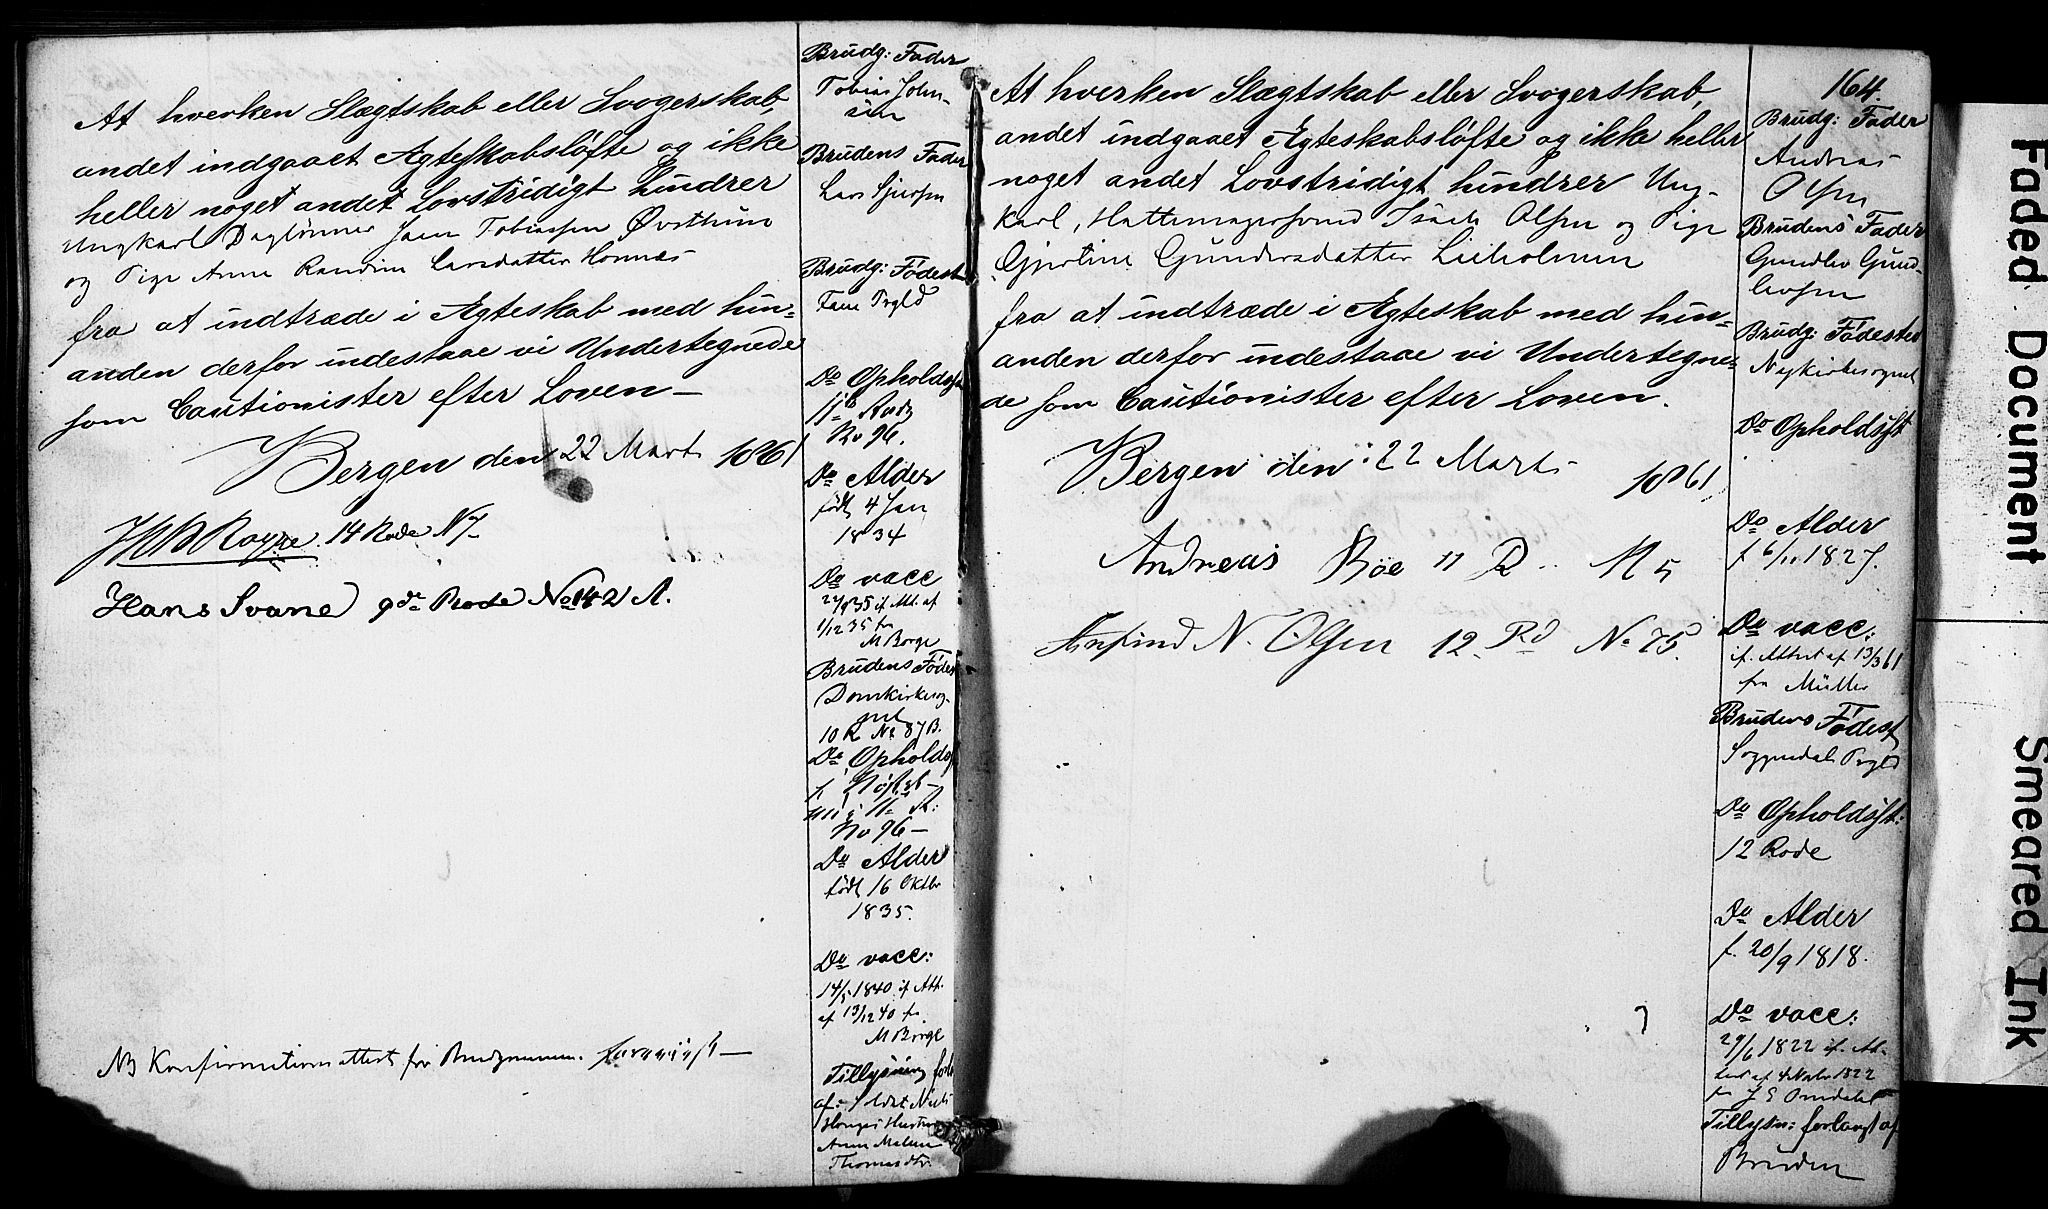 At hverken Slægtskab eller Svogerskab,
andet indgaaet Ægteskabsløfte og ikke
heller noget andet Lovstridigt hindrer
Ungkarl Daglønner Tobiassen
og Pige Anne Larsdatter
fra at indtræde i Ægteskab med hin-
anden derfor indestaae vi Undertegnede
som Cautionister efter Loven –
Bergen den 22 Marts 1861
14 Rode N 7
Hans Svane 9de Rode No 142 A.
NB Konfirmationsattest for
Brudg: Fader
Tobias John-
sen
Brudens Fader
Lars
Brudg: Fødest
Do Opholdsst
No 96.
Do Alder
født 4 Jan
1834
Do vacc
35 if Att. af
1/12 35 fra
M Borge
Brudens Fødest
Domkirkesog-
net
10 R No 87 B.
Do Opholdsst
No 96 –
Do Alder
født 16 Oktbr
1835.
Do vacc:
14/5 1840 if Att.
af 13/12 40 fr.
M Borge
Tillysning forl
af:
Hustru
Thomasdtr
At hverken Slægtskab eller Svogerskab,
andet indgaaet Ægteskabsløfte og ikke heller
noget andet Lovstridigt hindrer Ung-
karl, Hattemagersvend Isach Olsen og Pige
Gjertine Gundersdatter
fra at indtræde i Ægteskab med hin-
anden derfor indestaae vi Undertegne-
de som Cautionister efter Loven.
Bergen den 22 Marts 1861
Andreas Böe 11 R. N 5
N. Olsen 12 Rd No 75.
164.
Brudg: Fader
Andreas
Olsen
Brudens Fader
Brudg: Fødested
Nykirkesognet
Do Opholdsst
Do Alder
f 6/11 1827.
Do vacc:
if. Attest af 13/3 61
fra Müller
Brudens Fødest
Sogndal Prgld
Do Opholdsst:
12 Rode
Do Alder
f. 20/9 1818.
Do vacc:
29/6 1822 if. At-
test af 4 Novbr 1822
Tillysn: forlangt af
Bruden
Faded Document
Smeared Ink